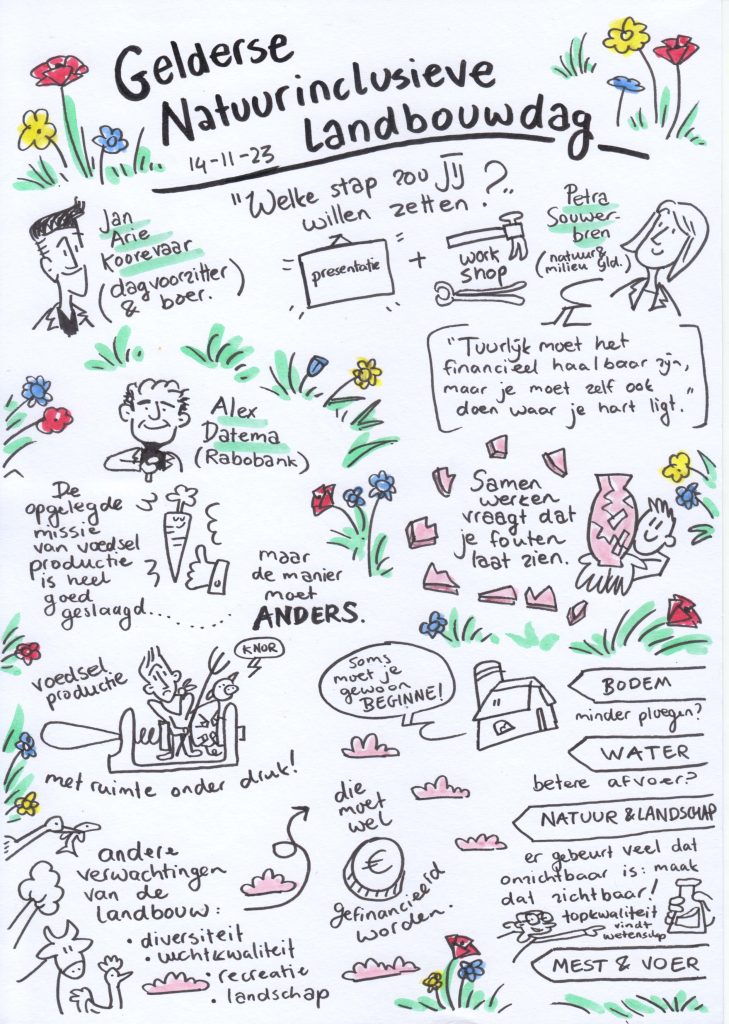 Gelderse
Natuurinclusieve
Landbouwdag
14-11-23
"Welke stap zou JIJ
willen zetten?"
Jan
Arie
Koorevaar
(dagvoorzitter
& boer.)
presentatie
+
work
shop
Petra
Souwer-
bren
(natuur &
milieu gld.)
"Tuurlijk moet het
financieel haalbaar zijn,
maar je moet zelf ook
doen waar je hart ligt."
Alex
Datema
(Rabobank)
De
opgelegde
missie
van voedsel
productie
is heel
goed
geslaagd..........
maar
de manier
moet
ANDERS.
Samen
werken
vraagt dat
je fouten
laat zien.
voedsel
productie
KNOR
met ruimte onder druk!
soms
moet je
gewoon
BEGINNE!
BODEM
minder ploegen?
WATER
betere afvoer?
NATUUR & LANDSCHAP
er gebeurt veel dat
onzichtbaar is: maak
dat zichtbaar!
topkwaliteit
vindt
wetenschap
MEST & VOER
andere
verwachtingen
van de
landbouw:
• diversiteit
• luchtkwaliteit
• recreatie
• landschap
die
moet
wel
€
gefinancieerd
worden.